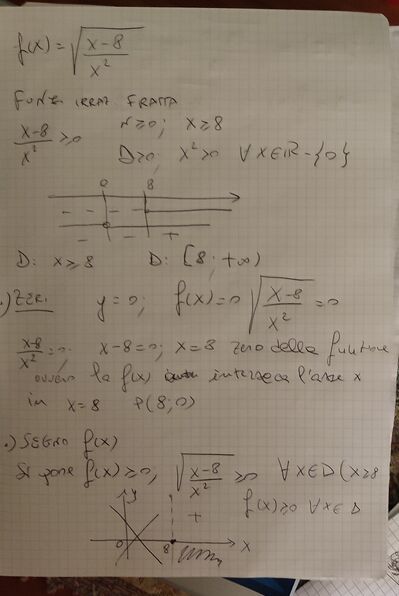 f(x) = √((x-8)/x²)
FUNZ. IRRAZ. FRATTA
(x-8)/x² ≥0 N≥0; x≥8
D>0; x²>0 ∀x∈ℝ-{0}
0 8
- - - -
- - +
D: x≥8 D: [8; +∞)
.) ZERI y=0; f(x)=0 √((x-8)/x²) =0
(x-8)/x² =0; x-8=0; x=8 zero della funzione
ovvero la f(x) interseca l'asse x
in x=8 P(8;0)
.) SEGNO f(x)
Si pone f(x)≥0; √((x-8)/x²) ≥0 ∀x∈D (x≥8
f(x)≥0 ∀x∈D
y
+
0 8 x